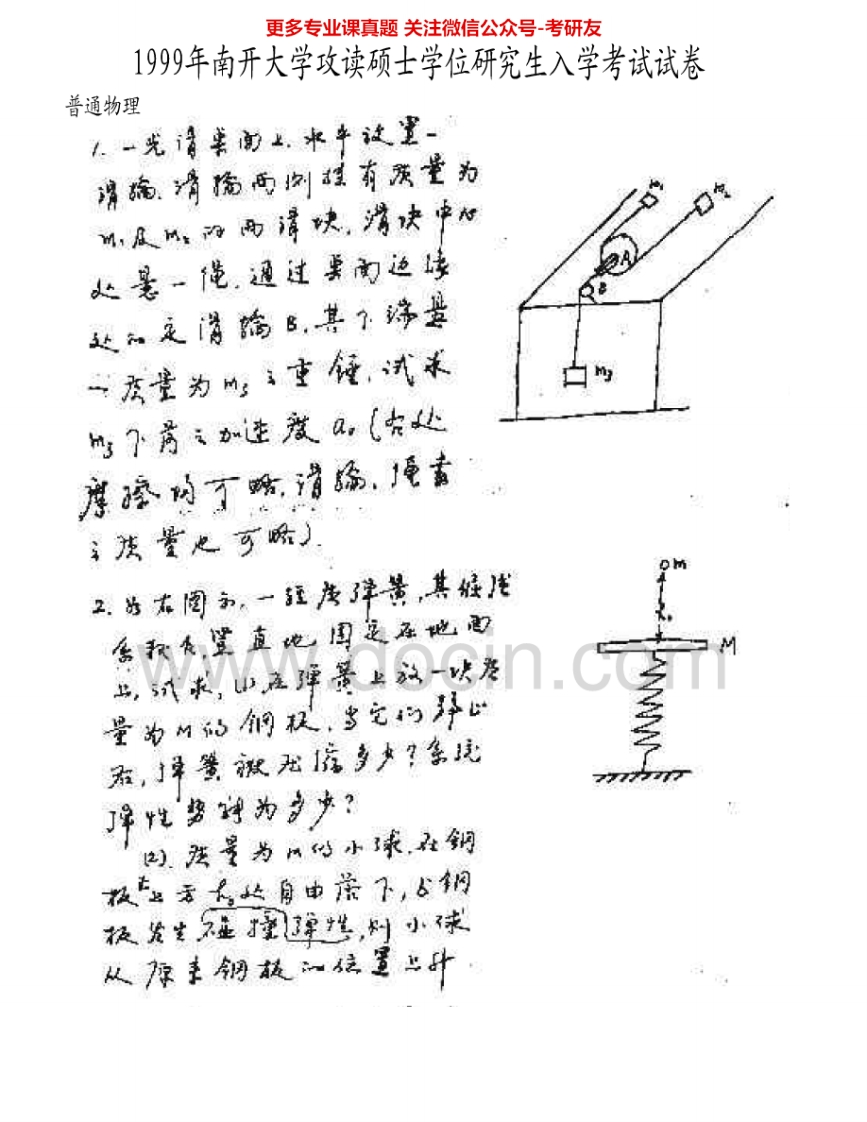 更多专业课真题 关注微信公众号-考研友
1999年南开大学攻读硕士学位研究生入学考试试卷
普通物理
1. 一光滑桌面上.水平放置一
滑轮.滑轮两侧挂有质量为
m₁及m₂的两滑块.滑块中心
处悬一绳.通过桌面边缘
处的定滑轮B.其下端悬
一质量为m₃之重锤.试求
m₃下落之加速度a。(各处
摩擦均可略.滑轮.绳索
之质量也可略).
m₁
m₂
A
B
m₃
2. 如右图示.一轻质弹簧,其倔强
系数 竖直地固定在地面
上,试求,(1)在弹簧上放一块质
量为M的钢板.当它们静止
后,弹簧被压缩多少?系统
弹性势能为多少?
(2).质量为m的小球.在钢
板上方h₀处自由落下,与钢
板发生碰撞弹性,则小球
从原来钢板的位置上升
m
M
www.docin.com